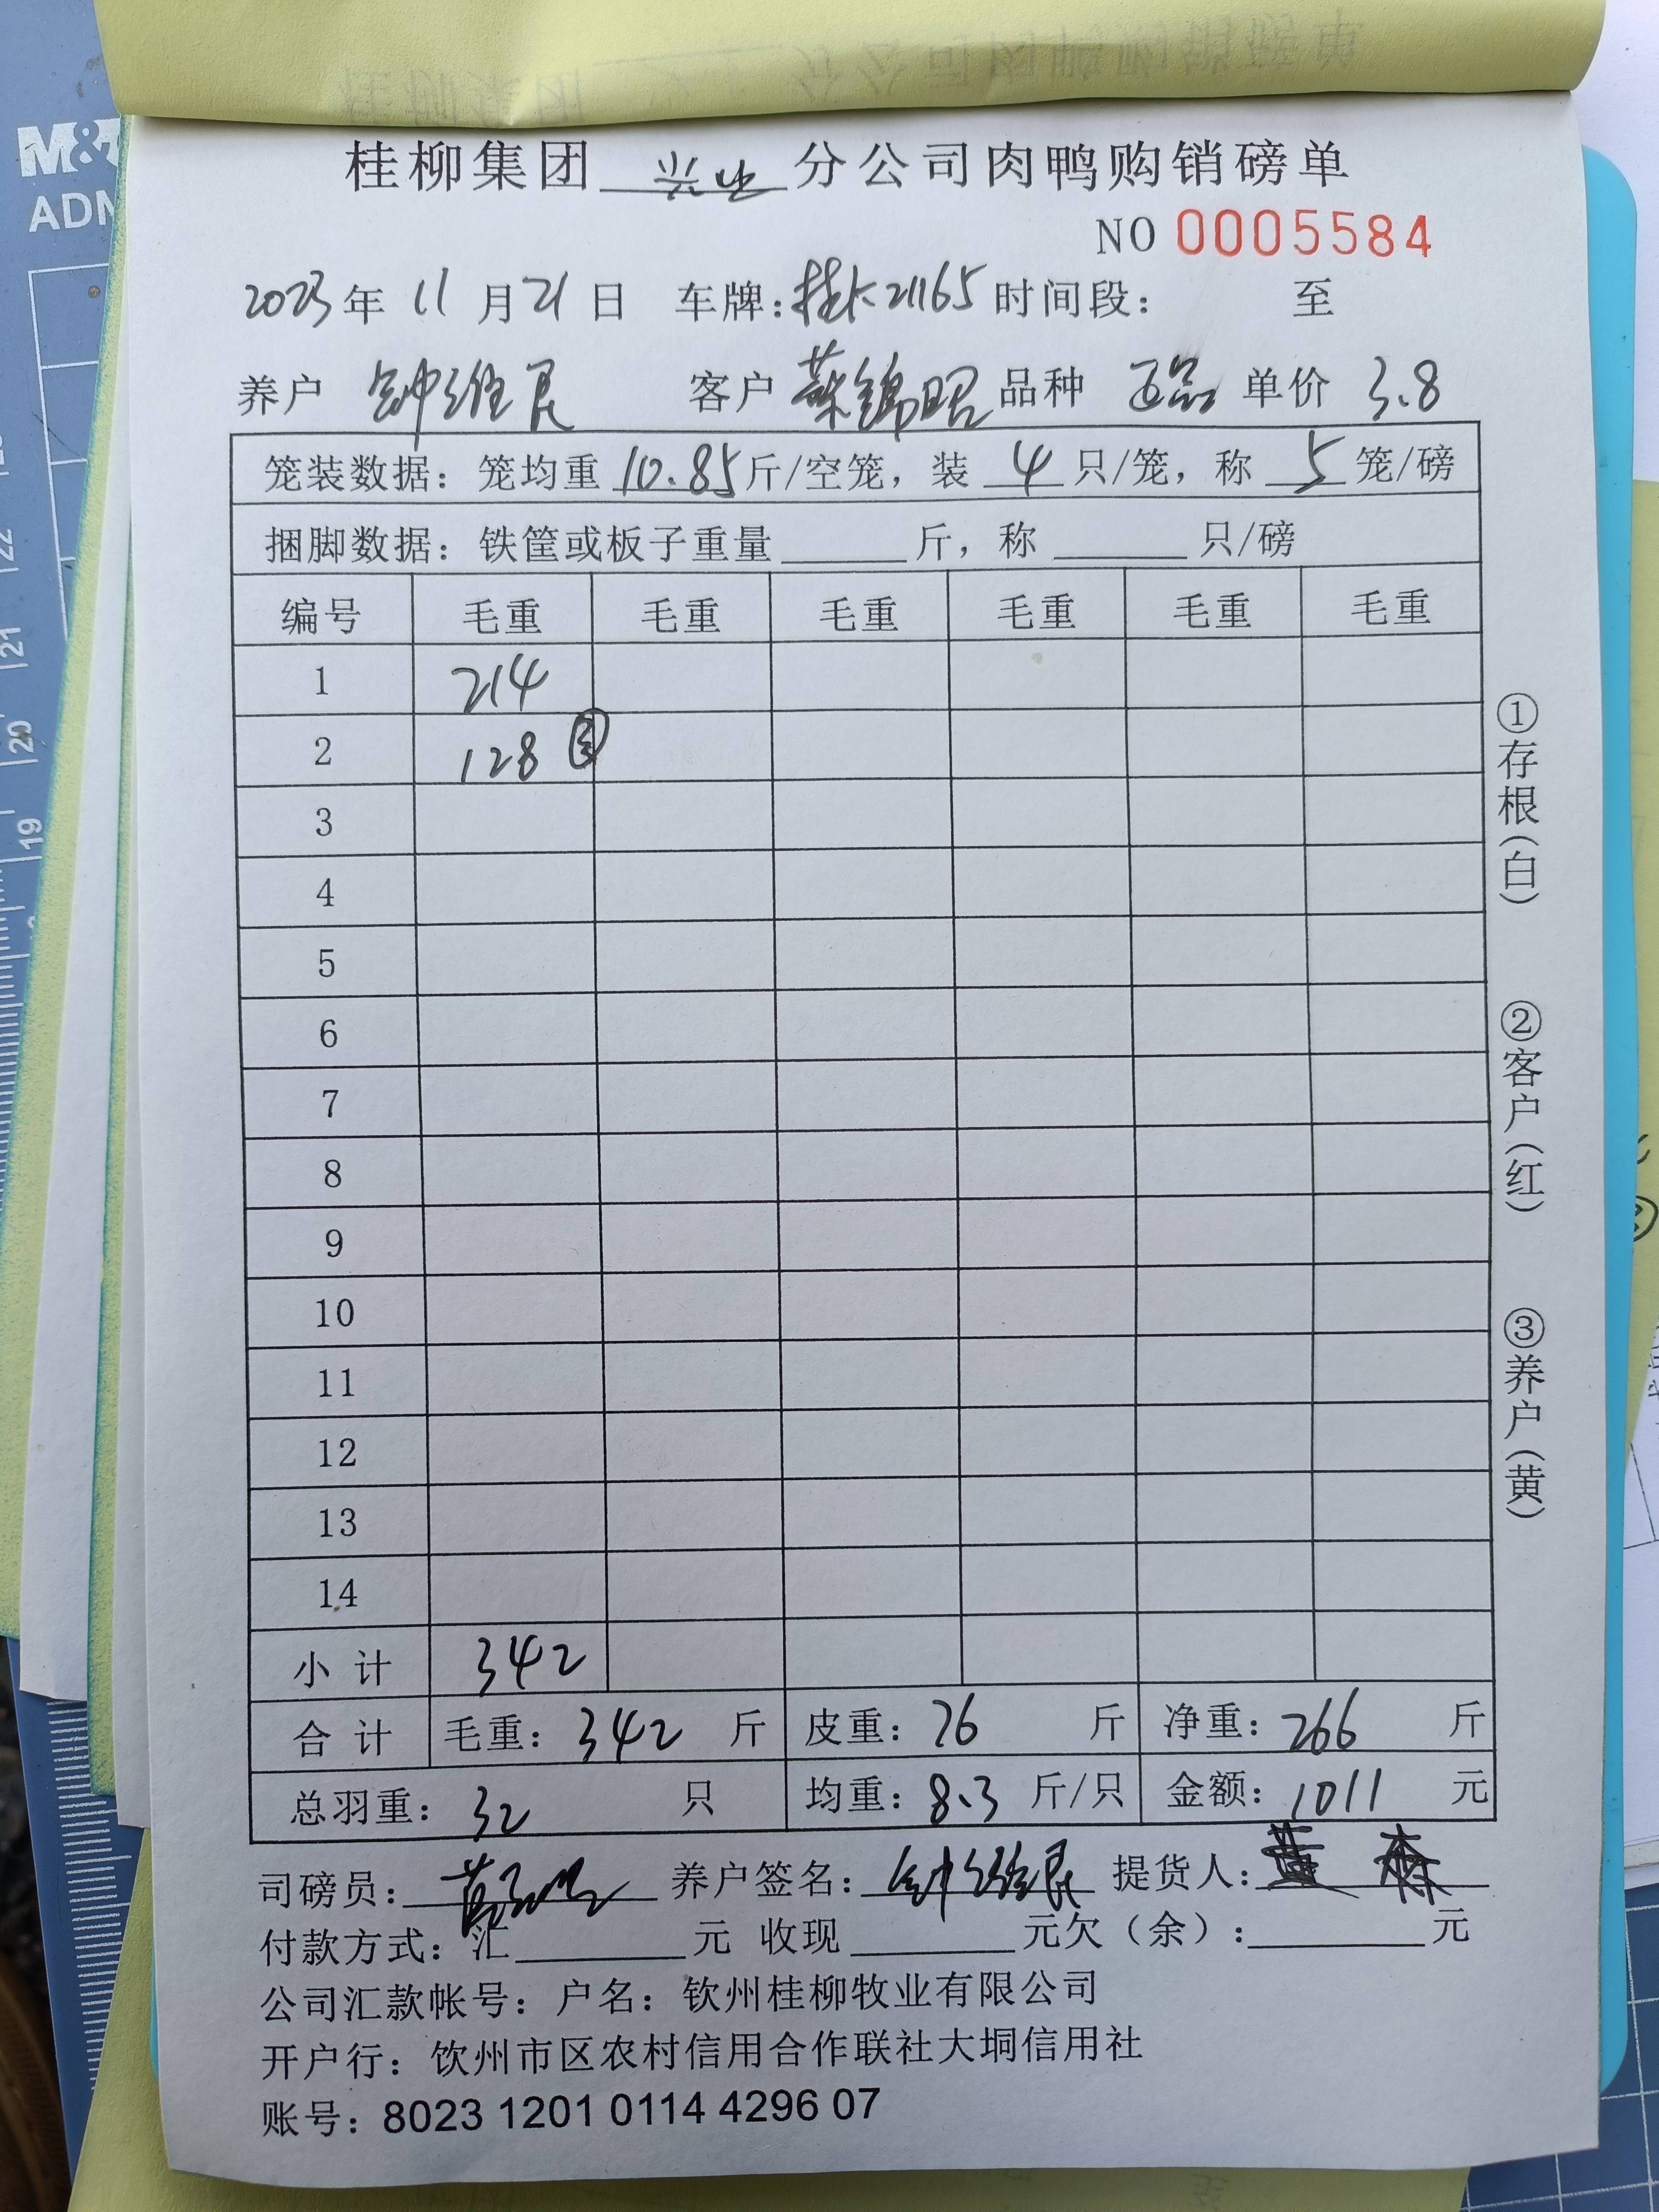 M&
ADM
桂柳集团 兴业 分公司肉鸭购销磅单
NO 0005584
2023年 11月21日 车牌:桂K21165 时间段: 至
养户 钟维民 客户 蔡锦昭 品种 单价 3.8
笼装数据: 笼均重 10.85 斤/空笼, 装 4 只/笼, 称 5 笼/磅
捆脚数据: 铁筐或板子重量 斤, 称 只/磅
编号 毛重 毛重 毛重 毛重 毛重 毛重
1 214
2 128 ③
3
4
5
6
7
8
9
10
11
12
13
14
小计 342
合计 毛重: 342 斤 皮重: 76 斤 净重: 266 斤
总羽重: 32 只 均重: 8.3 斤/只 金额: 1011 元
司磅员: 养户签名: 钟维民 提货人: 黄森
付款方式: 汇 元 收现 元欠(余): 元
公司汇款帐号: 户名: 钦州桂柳牧业有限公司
开户行: 钦州市区农村信用合作联社大垌信用社
账号: 8023 1201 0114 4296 07
①存根(白)
②客户(红)
③养户(黄)
22
21
20
19